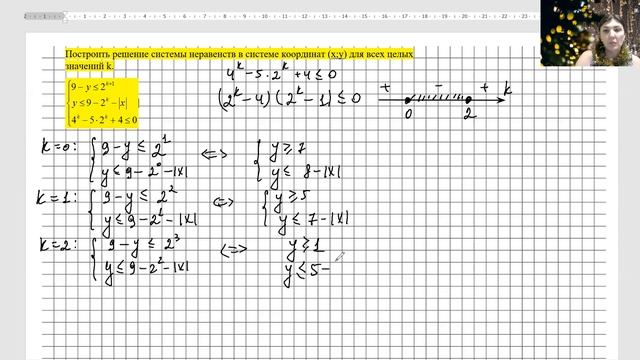 Построить решение системы неравенств в системе координат (x;y) для всех целых
значений k.
9 − y ≤ 2^{k+1}
y ≤ 9 − 2^k − |x|
4^k − 5·2^k + 4 ≤ 0
4^k − 5·2^k + 4 ≤ 0
(2^k − 4)(2^k − 1) ≤ 0
+ − + k
0 2
k=0: 9 − y ≤ 2^1 <=> y ≥ 7
y ≤ 9 − 2^0 − |x| y ≤ 8 − |x|
k=1: 9 − y ≤ 2^2 <=> y ≥ 5
y ≤ 9 − 2^1 − |x| y ≤ 7 − |x|
k=2: 9 − y ≤ 2^3 <=> y ≥ 1
y ≤ 9 − 2^2 − |x| y ≤ 5 −